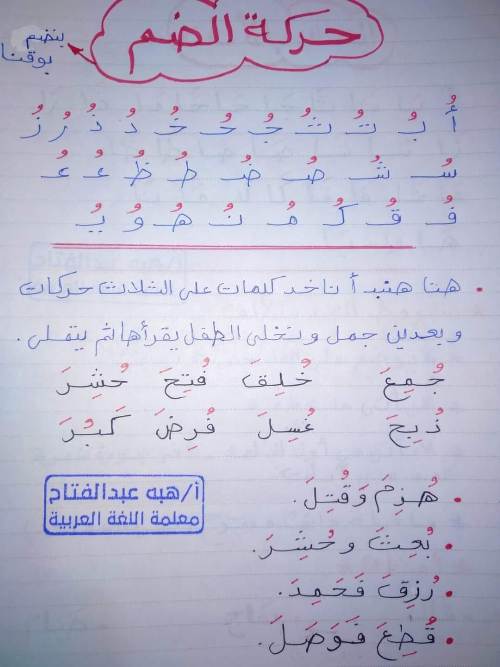 حركة الضم
بنضم
بوقنا
أُ بُ تُ ثُ جُ حُ خُ دُ ذُ رُ زُ
سُ شُ صُ ضُ طُ ظُ عُ غُ
فُ قُ كُ مُ نُ هُ وُ يُ
هنا هنبدأ ناخد كلمات على الثلاث حركات
وبعدين جمل ونخلى الطفل يقرأها ثم يتملى.
جُمِعَ خُلِقَ فُتِحَ حُشِرَ
ذُبِحَ غُسِلَ فُرِضَ كَبُرَ
هُزِمَ وَقُتِلَ.
بُعِثَ وَحُشِرَ.
رُزِقَ فَحَمِدَ.
قُطِعَ فَوَصَلَ.
أ/هبه عبدالفتاح
معلمة اللغة العربية